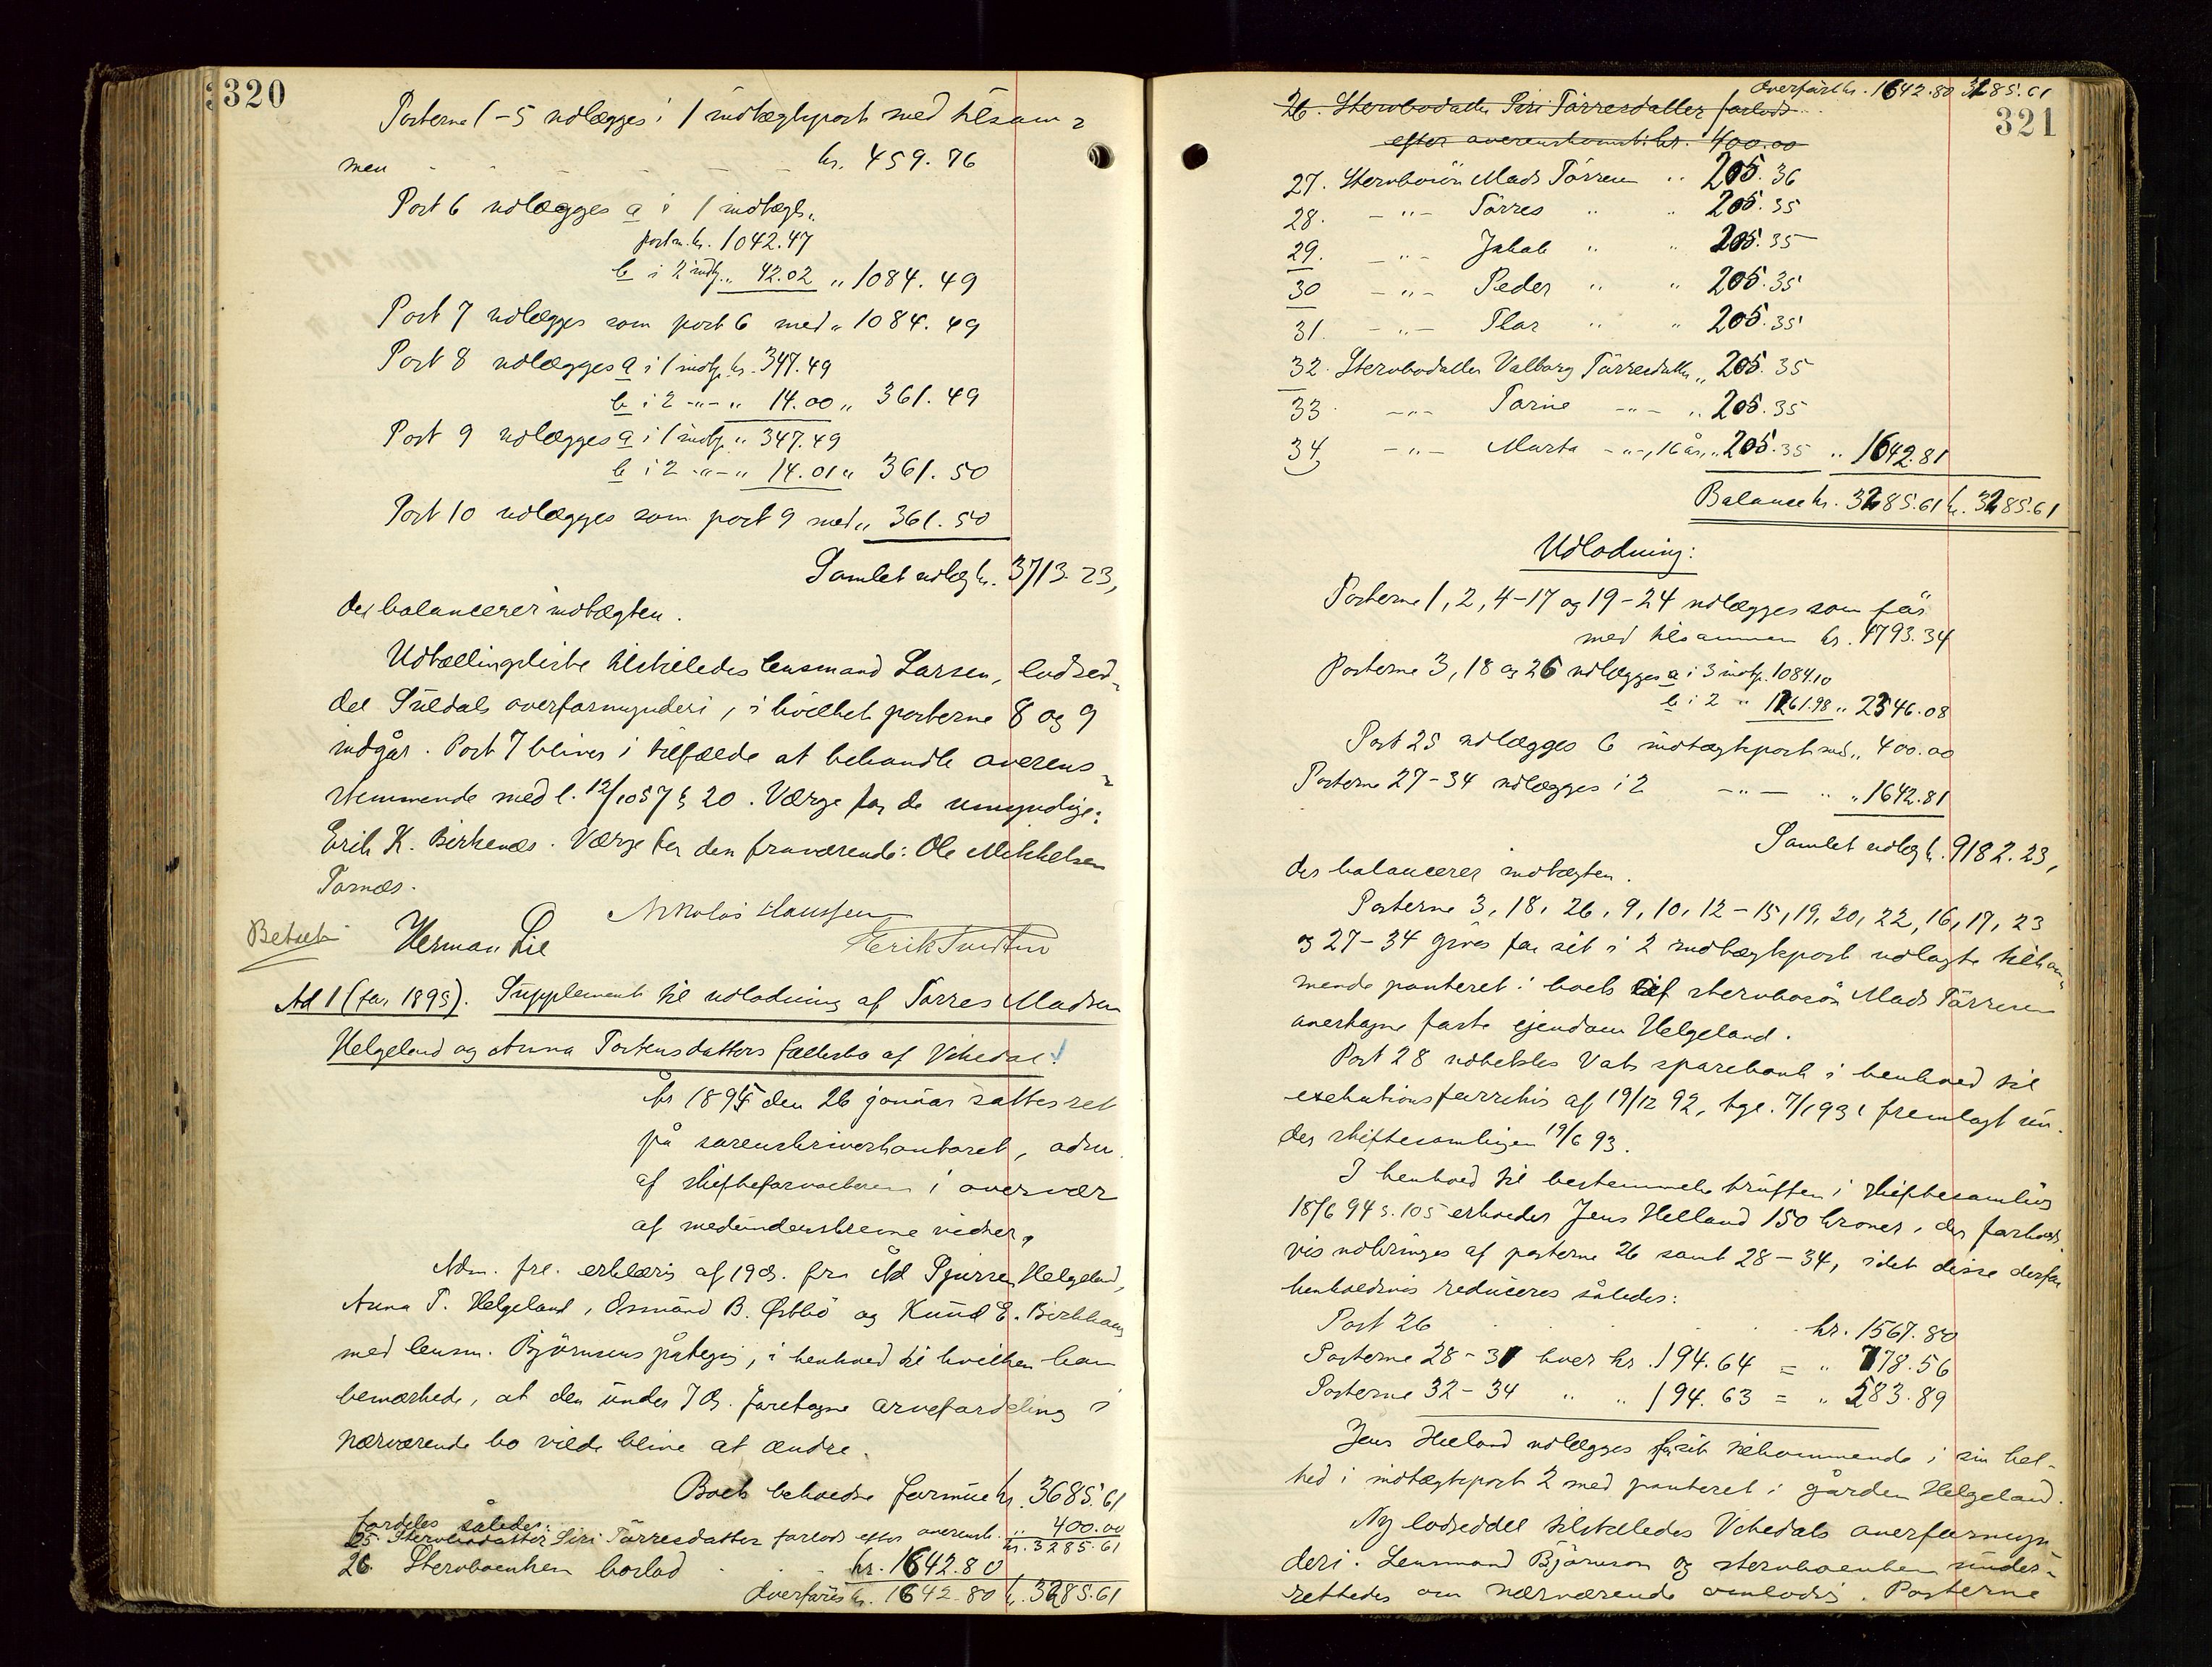 320
Posterne 1-5 udlægges i 1 indtægtspost med tilsam=
men kr. 459.76
Post 6 udlægges a i 1 indtægts"
post m. kr. 1042.47
b i 2 indtg. " 42.02 " 1084.49
Post 7 udlægges som post 6 med " 1084.49
Post 8 udlægges a i 1 indtg. kr. 347.49
b i 2 -"- " 14.00 " 361.49
Post 9 udlægges a i 1 indtg. " 347.49
b i 2 -"- " 14.01 " 361.50
Post 10 udlægges som post 9 med " 361.50
Samlet udlæg kr. 3713.23,
der balancerer indtægten.
Udtællingsliste tilstilledes lensmand Larsen, lodsed-
del Suldals overformynderi, i hvilket posterne 8 og 9
indgår. Post 7 bliver i tilfælde at behandle overens=
stemmende med l. 12/10 57 § 20. Værge for de umyndige:
Erik K. Birkenæs. Værge for den fraværende: Ole Mikkelsen
Tornæs.
Nikolai Hanssen
Betalt Herman Lie Erik Tveitun
Ad 1 (for 1895). Supplement til udlodning af Torres Madsen
Helgeland og Anna Torkensdatters fællesbo af Vikedal!
År 1895 den 26 januar sattes ret
på sorenskriverkontoret, adm.
af skifteforvalteren i overvær
af medunderskrevne vidner.
Adm. fre. erklæring af 19 ds. fra Ad Tjurren Helgeland,
Anna T. Helgeland, Osmund B. Østbö og Knud E. Birkhaug
med lensm. Björnsens påtegn., i henhold til hvilken han
bemærkede, at den under 7 ds. foretagne arvefordeling i
nærværende bo vilde blive at ændre.
Boets beholdne formue kr. 3685.61
fordeles således:
25. Stervbodatter Siri Törresdatter forlods efter overensk. " 400.00
kr. 3285.61
26. Stervboenken boslod kr. 1642.80
Overföres kr. 1642.80 kr. 3285.61
Overfört kr. 1642.80 3285.61
321
26. Stervbodatter Siri Törresdatter forlods
efter overenskomst: kr. 400.00
27. Stervbosön Mads Törresen " 205.36
28. -"- Törres " " 205.35
29. -"- Jakob " " 205.35
30 -"- Peder " " 205.35
31. -"- Tlor " " 205.35
32. Stervbodatter Valborg Törresdatter " 205.35
33. -"- Torine -"- " 205.35
34 -"- Marta -"-, 16 år, " 205.35 " 1642.81
Balance kr. 3285.61 kr. 3285.61
Udlodning:
Posterne 1, 2, 4-17 og 19-24 udlægges som för
med tilsammen kr. 4793.34
Posterne 3, 18 og 26 udlægges a i 3 indtg. 1084.10
b i 2 " 1261.98 " 2346.08
Post 25 udlægges 6 indtægtspost med " 400.00
Posterne 27-34 udlægges i 2 -"- " " 1642.81
Samlet udlæg kr. 9182.23,
der balancerer indtægten.
Posterne 3, 18, 26, 9, 10, 12-15, 19, 20, 22, 16, 17, 23
og 27-34 gives for sit i 2 indtægtspost udlagte tilkom-
mende panteret i boets af stervbosön Mads Törresen
overtagne faste ejendom Helgeland.
Post 28 udbetales Vats sparebank i henhold til
exekutionsforretn. af 19/12 92, tgl. 7/1 93, fremlagt un-
der skiftesamlingen 19/6 93.
I henhold til bestemmelse truffen i skiftesamling
18/6 94 s. 105 erholder Jens Helland 150 kroner, der forholds-
vis udbringes af posterne 26 samt 28-34, idet disse derfor
henholdsvis reduceres således:
Post 26 kr. 1567.80
Posterne 28-31 hver kr. 194.64 = " 778.56
Posterne 32-34 " " 194.63 = " 583.89
Jens Helland udlægges for sit tilkommende i sin hel-
hed i indtægtspost 2 med panteret i gården Helgeland.
Ny lodseddel tilstilledes Vikedals overformyn
deri. Lensmand Björnson og stervboenken under-
rettedes om nærværende omlodn. Posterne